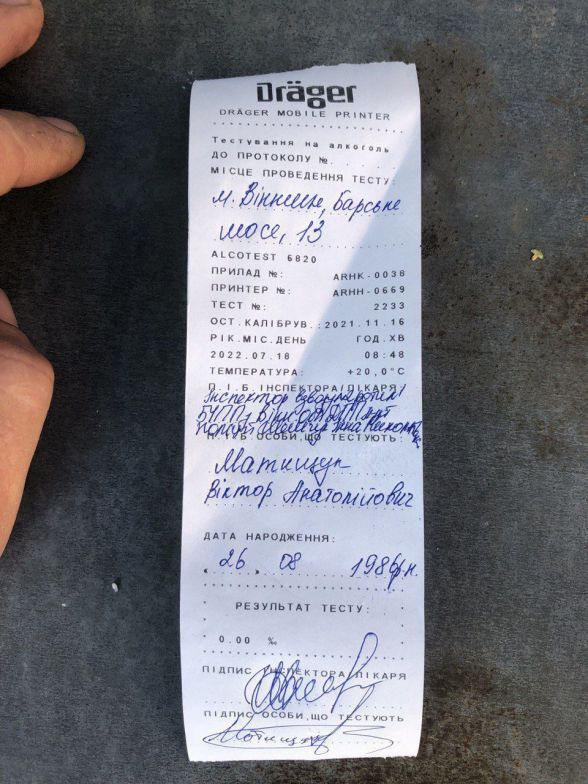 Dräger
DRÄGER MOBILE PRINTER
Тестування на алкоголь
ДО ПРОТОКОЛУ №.
МІСЦЕ ПРОВЕДЕННЯ ТЕСТУ:
м. Вінниця, Барське
шосе, 13
ALCOTEST 6820
ПРИЛАД №: ARHK-0038
ПРИНТЕР №: ARHH-0669
ТЕСТ №: 2233
ОСТ.КАЛІБРУВ.:2021.11.16
РІК.МІС.ДЕНЬ ГОД.ХВ
2022.07.18 08:48
ТЕМПЕРАТУРА: +20,0°C
П.І.Б.ІНСПЕКТОРА/ЛІКАРЯ
Інспектор взводу
БУПП у Він
П.І.Б ОСОБИ,ЩО ТЕСТУЮТЬ:
Матищук
Віктор Анатолійович
ДАТА НАРОДЖЕННЯ:
"26" 08 1986р.н.
РЕЗУЛЬТАТ ТЕСТУ:
0.00 ‰
ПІДПИС ІНСПЕКТОРА/ЛІКАРЯ
ПІДПИС ОСОБИ,ЩО ТЕСТУЮТЬ